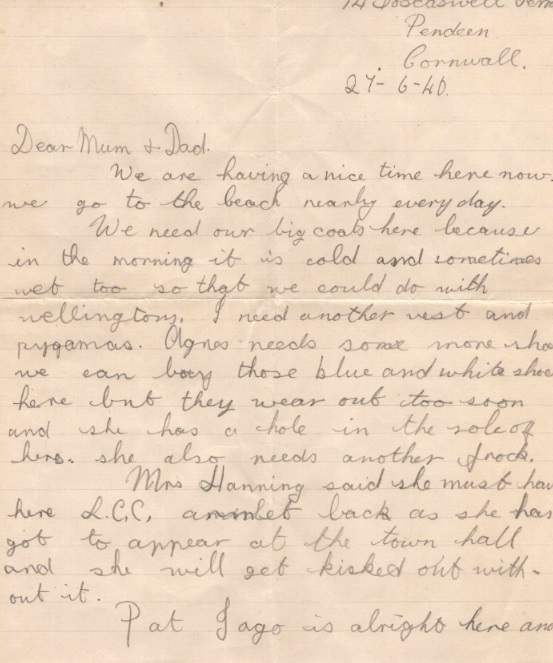 14 Boscaswell Terr
Pendeen
Cornwall.
27-6-40.
Dear Mum & Dad.
We are having a nice time here now.
we go to the beach nearly every day.
We need our big coats here because
in the morning it is cold and sometimes
wet too so that we could do with
wellingtons. I need another vest and
pygamas. Agnes needs some more shoe
we can buy those blue and white shoe
here but they wear out too soon
and she has a hole in the sole of
hers. she also needs another frock.
Mrs Hanning said she must hav
here L.C.C. armlet back as she has
got to appear at the town hall
and she will get kisked out with-
out it.
Pat Jago is alright here and